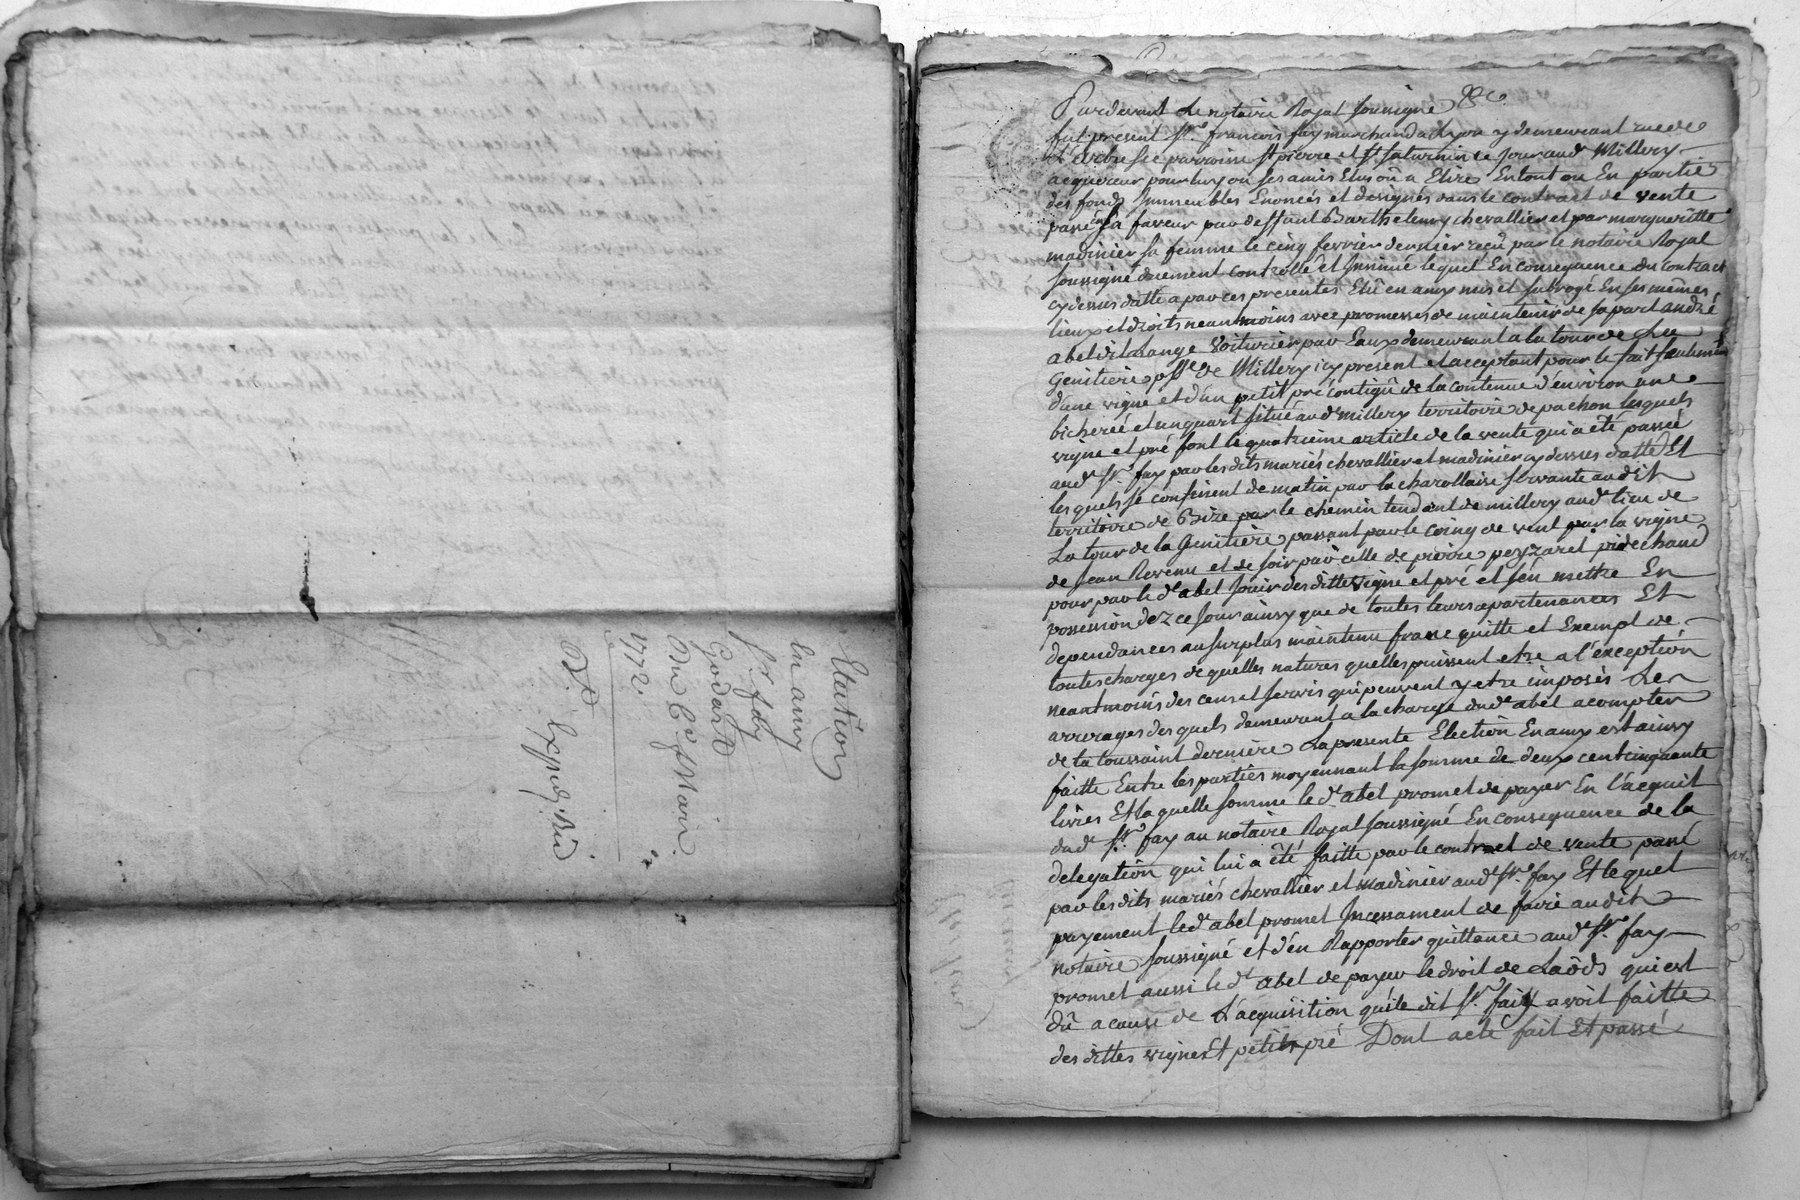 Election
En amy
Sr. fay
Godard
1772.
Exped.
Pardevant Le notaire Royal soussigné
fut présent Sr. francois fay marchand a Lyon y demeurant rue de
parroisse St pierre et St Saturnin Ce Jour aud Millery
acquereur pour luy ou ses amis Elus où a Elire En tout ou En partie
des fonds Immeubles Enoncés et désignés dans le contract de vente
passé en sa faveur par deffunt Barthelemy chevallier et par margueritte
madinier sa femme le cinq fevrier dernier reçû par le notaire Royal
soussigné düement controllé et Insinué lequel En consequence du contract
cy dessus datté a par ces presentes Elû en amy mis et subrogé En ses memes
lieux et droits neanmoins avec promesses de maintenir de sa part andré
abel dit Lange Voiturier par Eaux demeurant a la tour de La
Genitiere psse de Millery icy present et acceptant pour le fait seulement
d'une vigne et d'un petit pré contigû de la contenue d'environ une
bicherée et un quart situé aud millery territoire de pachon lesquels
vigne et pré sont le quatrieme article de la vente qui a été passée
aud Sr. fay par les dits mariés chevallier et madinier cy dessus datté Et
lesquels se confinent de matin par la charollaise servante audit
territoire de Bize par le chemin tendant de millery aud lieu de
La tour de la Genitiere passant par le Coing de vent par la vigne
de Jean Revenu et de soir par celle de pierre peyzaret
pour par le d abel Jouir des dittes vigne et pré et s'en mettre En
possession dez ce jour ainsy que de toutes leurs apartenances Et
dependances au surplus maintenu franc quitte et Exempt de
toutes charges de quelles natures quelles puissent etre a l'exception
neantmoins des cens et servis qui peuvent y etre imposés Les
arrerages desquels demeurant a la charge dud abel a compter
de la toussaint derniere La presente Election En amy est ainsy
faitte Entre les parties moyennant la somme de deux cent cinquante
livres Et la quelle somme le d. abel promet de payer En l'acquit
dud Sr. fay au notaire Royal soussigné En consequence de la
delegation qui lui a été faitte par le contract de vente passé
par les dits mariés chevallier et madinier aud Sr. fay Et lequel
payement le d abel promet Incessament de faire audit
notaire soussigné et d'en Rapporter quittance aud Sr. fay
promet aussi le d abel de payer le droit de Laods qui est
dû a cause de L'acquisition que le dit Sr. fay avoit faitte
des dittes vigne Et petit pré Dont acte fait Et passé